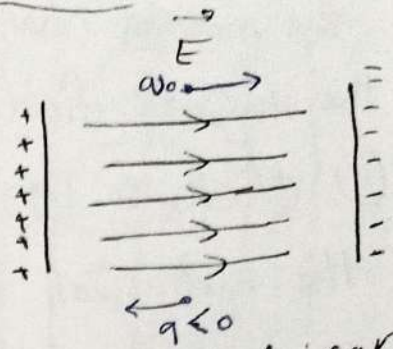 E
v₀
+ + + + + + +
- - - - - - -
q < 0